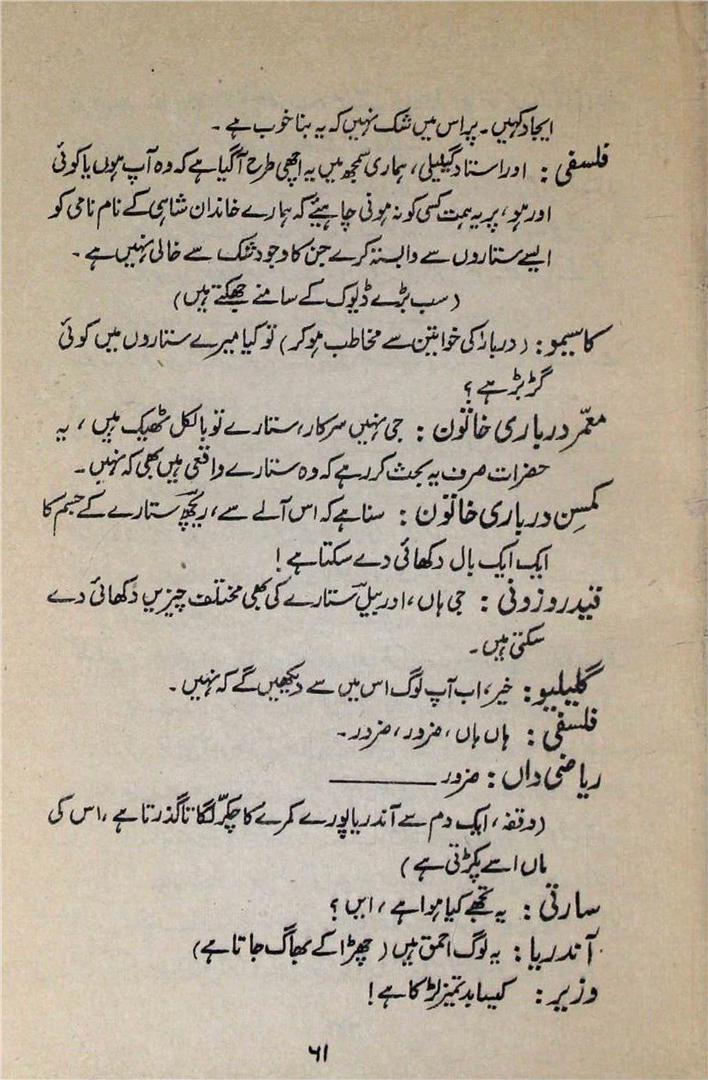 ایجاد کہیں۔ پر اس میں شک نہیں کہ یہ بنا خوب ہے۔
فلسفی : اور استاد گیلیلی، ہماری سمجھ میں یہ اچھی طرح آگیا ہے کہ وہ آپ ہوں یا کوئی
اور ہو، پر یہ ہمت کسی کو نہ ہونی چاہئیے کہ ہمارے خاندان شاہی کے نام نامی کو
ایسے ستاروں سے وابستہ کرے جن کا وجود شک سے خالی نہیں ہے۔
(سب بڑے ڈیوک کے سامنے جھکتے ہیں)
کاسیمو : (دربار کی خواتین سے مخاطب ہو کر) تو کیا میرے ستاروں میں کوئی
گڑبڑ ہے؟
معمّر درباری خاتون : جی نہیں سرکار، ستارے تو بالکل ٹھیک ہیں، یہ
حضرات صرف یہ بحث کر رہے کہ وہ ستارے واقعی ہیں بھی کہ نہیں۔
کمسِن درباری خاتون : سنا ہے کہ اس آلے سے، ریچھ ستارے کے جسم کا
ایک ایک بال دکھائی دے سکتا ہے!
فیدروزونی : جی ہاں، اور بیل ستارے کی بھی مختلف چیزیں دکھائی دے
سکتی ہیں۔
گلیلیو : خیر، اب آپ لوگ اس میں سے دیکھیں گے کہ نہیں۔
فلسفی : ہاں ہاں، ضرور، ضرور۔
ریاضی داں : ضرور ————
(وقفہ، ایک دم سے آندریا پورے کمرے کا چکّر لگاتا گذرتا ہے، اس کی
ماں اسے پکڑتی ہے)
سارتی : یہ تجھے کیا ہوا ہے، ایں؟
آندریا : یہ لوگ احمق ہیں (چھڑا کے بھاگ جاتا ہے)
وزیر : کیسا بدتمیز لڑکا ہے!
۶۱